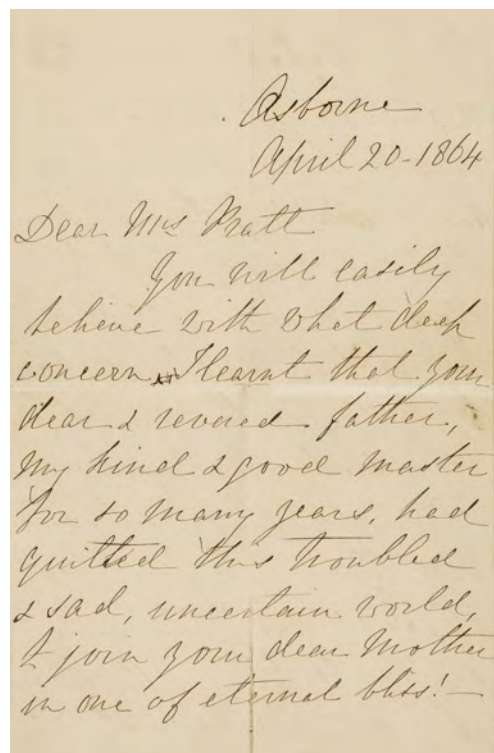 Osborne
April 20-1864
Dear Mrs Pratt
You will easily
believe with what deep
concern I learnt that your
dear & revered father,
my kind & good master
for so many years, had
quitted this troubled
& sad, uncertain world,
to join your dear Mother
in one of eternal bliss!—